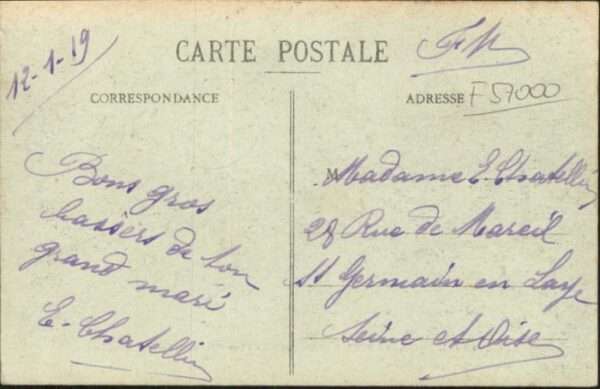 12-1-19
CARTE POSTALE
FM
CORRESPONDANCE
ADRESSE F 57000
Bons gros
baisers de ton
grand mari
E. Chatellin
M Madame E. Chatellin
28 Rue de Mareil
St Germain en Laye
Seine et Oise